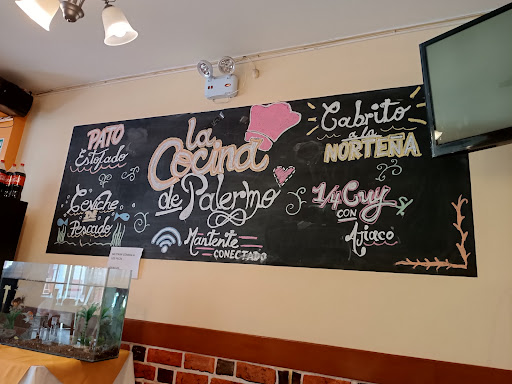 PATO
Estofado
Ceviche
DE
Pescado
la
Cocina
de Palermo
Mantente
CONECTADO
Cabrito
a la
NORTEÑA
1/4 Cuy
CON
Ajiaco